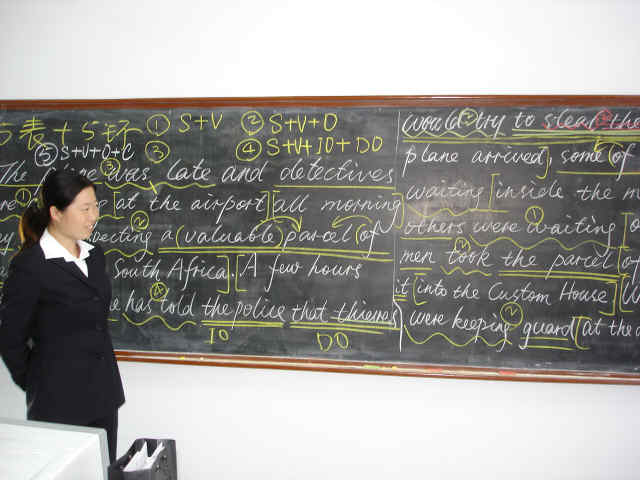 5表十5环 ① S+V ② S+V+O
⑤ S+V+O+C ③ ④ S+V+IO+DO
The was late and detectives
at the airport] [all morning
a (valuable) parcel (of
South Africa]. [A few hours
he has told the police that thieves
IO DO
would try to steal the
plane arrived], some of
waiting [inside the m
others were waiting [o
men took the parcel of
it [into the Custom House] [W
were keeping guard [at the d